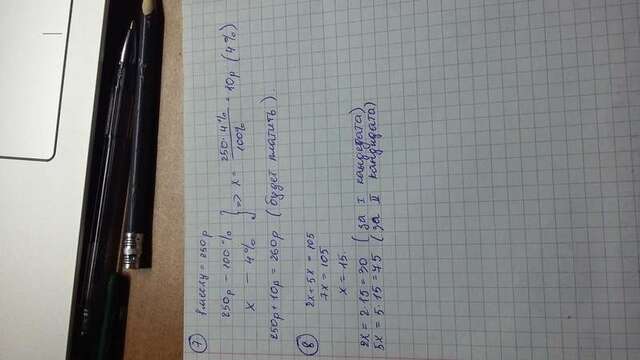 ⑦ 1 месяц = 250р
250р - 100% } => x = 250·4% / 100% = 10р (4%)
x - 4%
250р + 10р = 260р (будет платить)
⑧ 2x + 5x = 105
7x = 105
x = 15
2x = 2·15 = 30 (за I кандидата)
5x = 5·15 = 75 (за II кандидата)